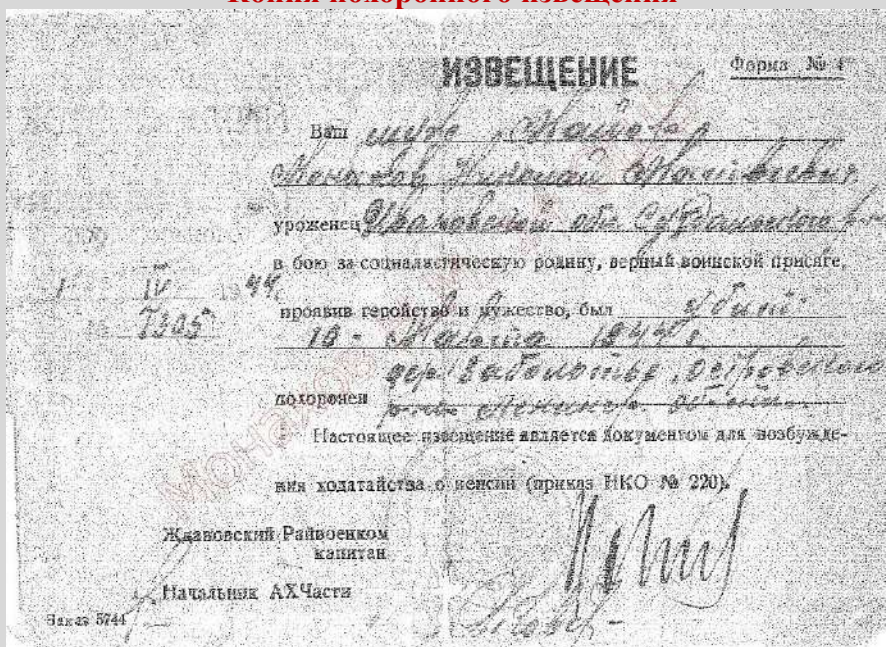 Копия похоронного извещения
ИЗВЕЩЕНИЕ
Форма № 4
Ваш муж
Монахов Николай
уроженец Ивановской обл. Суздальского р-на
в бою за социалистическую родину, верный воинской присяге,
1 IV 1944
7305
проявив геройство и мужество, был убит
10 Марта 1944 г.
дер. Заболотье, Островского
похоронен р-на Ленингр. области
Настоящее извещение является документом для возбужде-
ния ходатайства о пенсии (приказ НКО № 220).
Ждановский Райвоенком
капитан
Начальник АХЧасти
Заказ 5744
Монахов